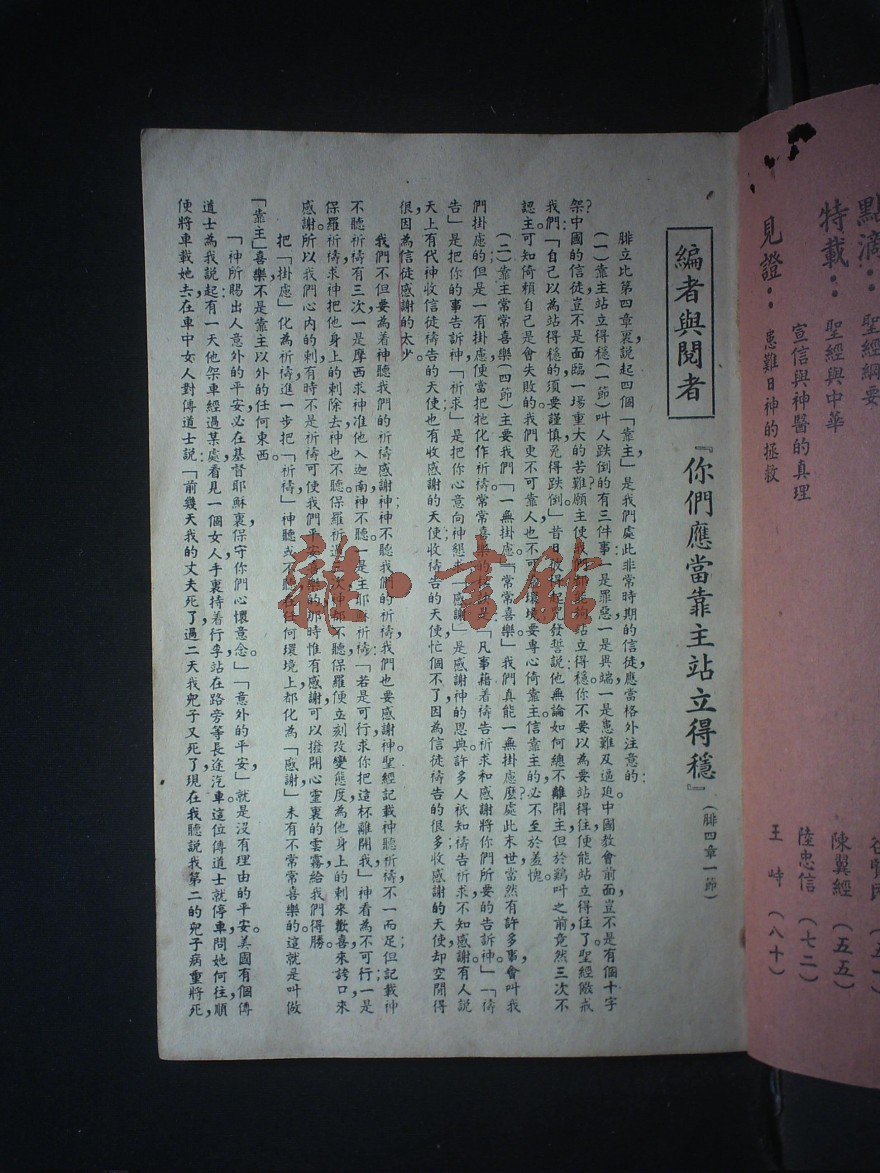 點滴：聖經綱要
特載：聖經與中華
陳翼經（五五）
宣信與神醫的真理
陸忠信（七二）
見證：患難日神的拯救
王峙（八十）
編者與閱者
『你們應當靠主站立得穩』（腓四章一節）
腓立比第四章裏說起四個「靠主」是我們處此非常時期的信徒，應當格外注意的：
（一）靠主站立得穩（一節）叫人跌倒的有三件事：一是罪惡，一是異端，一是患難及逼迫。中國教會前面豈不是有個十字
架？中國的信徒豈不是面臨一場重大的苦難？願主使我們都能夠站立得穩。你不要以為要站得住，便能站立得住了。聖經儆戒
我們：「自己以為站得穩的須要謹慎，免得跌倒。」昔日彼得起咒發誓說他無論如何總不離開主，但於鷄叫之前竟然三次不
認主。可知倚賴自己是會失敗的。我們更不可靠人，也不可靠環境，要專心倚靠主。信靠主的必不至於羞愧。
（二）靠主常常喜樂（四節）主要我們「一無掛慮」「常常喜樂」我們真能一無掛慮麼？處此末世，當然有許多事會叫我
們掛慮的，但是一有掛慮，便當把牠化作祈禱。常常喜樂的秘訣是：「凡事藉着禱告祈求和感謝，將你們所要的告訴神。」「禱
告」是把你的事告訴神，「祈求」是把你心意向神懇求，「感謝」是感謝神的恩典。許多人祇知禱告祈求，不知感謝。有人說：
天上有代神收信徒禱告的天使，也有收感謝的天使；收禱告的天使，忙個不了，因為信徒禱告的很多；收感謝的天使，却空閒得
很，因為信徒感謝的太少。
我們不但要為着神聽我們的祈禱感謝神；神不聽我們的祈禱，我們也要感謝神。聖經記載神聽祈禱，不一而足；但記載神
不聽祈禱有三次：一是摩西求神准他入迦南，神不聽；一是主耶穌祈禱：「若是可行，求你把這杯離開我，」神看為不可行；一是
保羅祈禱，求神把他身上的刺除去，神也不聽。保羅祈禱三次，神都不聽，保羅便立刻改變態度，為他身上的刺來歡喜，來誇口，來
感謝。所以我們心內的刺，有時不是祈禱可使我們平安喜樂的，那時惟有感謝，可以撥開心靈裏的雲霧，給我們得勝。
把「掛慮」化為祈禱，進一步把「祈禱」神聽或不聽，在任何環境上，都化為「感謝」未有不常常喜樂的。這就是叫做
「靠主」喜樂，不是靠主以外的任何東西。
「神所賜出人意外的平安，必在基督耶穌裏，保守你們心懷意念。」「意外的平安，」就是沒有理由的平安。美國有個傳
道士為我說起：有一天他架車經過某處，看見一個女人手裏持着行李站在路旁等長途汽車，這位傳道士就停車問她何往，順
便將車載她去，在車中女人對傳道士說：「前幾天我的丈夫死了，過二天我兒子又死了，現在我聽說我第二的兒子病重將死，
雜·書館